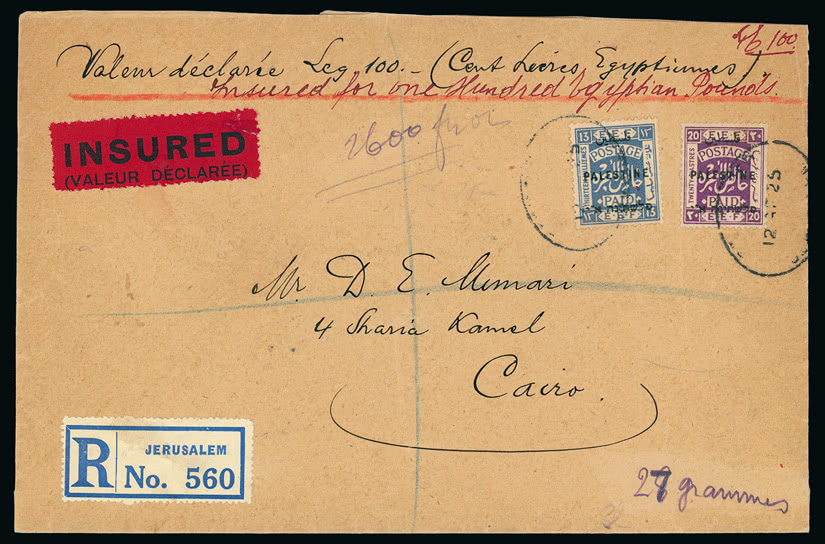 Valeur déclarée Leg 100.- (Cent Livres Egyptiennes)
£E 100
Insured for one Hundred Egyptian Pounds.
INSURED
(VALEUR DÉCLARÉE)
2600
13 E.E.F. ١٣
POSTAGE
PALESTINE
PAID
١٣ E.E.F. 13
20 E.E.F. ٢٠
POSTAGE
TWENTY PIASTRES
PALESTINE
PAID
٢٠ E.E.F. 20
12
25
Mr. D. E. Memari
4 Sharia Kamel
Cairo.
R
JERUSALEM
No. 560
27 grammes